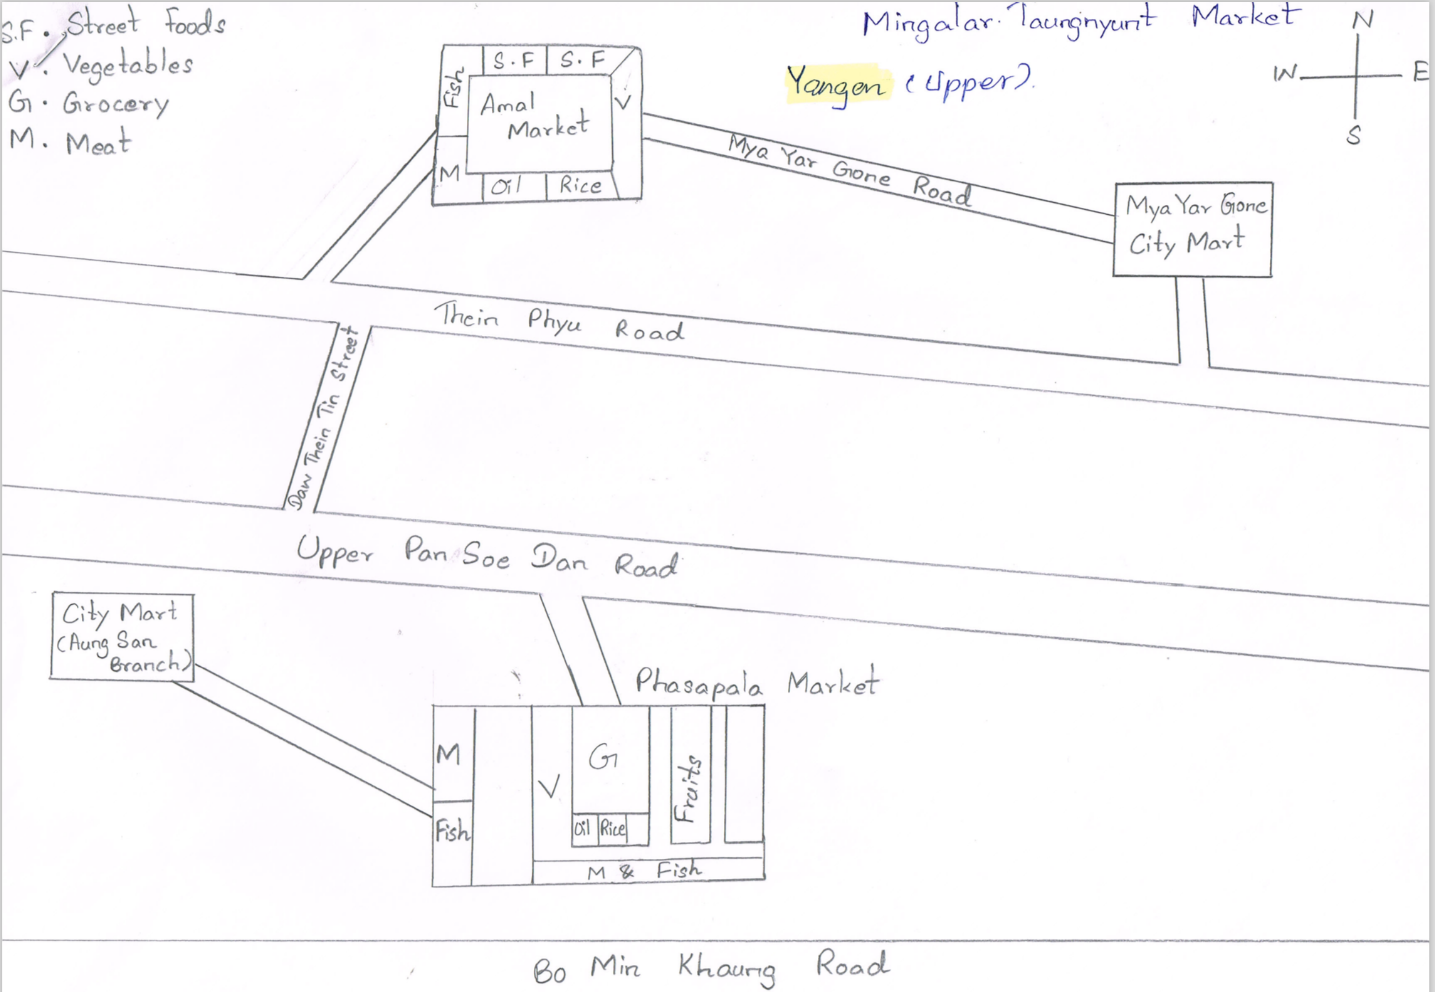 S.F. Street foods
V. Vegetables
G. Grocery
M. Meat
Mingalar Taungnyunt Market
Yangon (Upper).
N
W E
S
S.F S.F
Fish
Amal
Market
V
M
Oil Rice
Mya Yar Gone Road
Mya Yar Gone
City Mart
Thein Phyu Road
Daw Thein Tin Street
Upper Pan Soe Dan Road
City Mart
(Aung San
Branch)
Phasapala Market
M
Fish
V
G
Oil Rice
Fruits
M & Fish
Bo Min Khaung Road